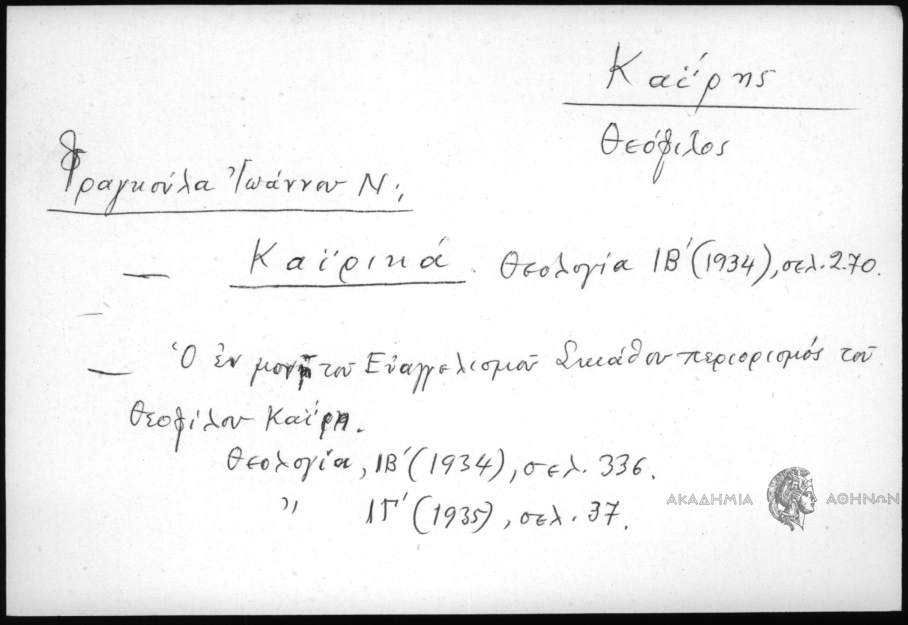 Καΐρης
Θεόφιλος
Φραγκούλα Ἰωάννου Ν.,
— Καϊρικά. Θεολογία ΙΒ΄ (1934), σελ. 270.
— Ὁ ἐν μονῇ τοῦ Εὐαγγελισμοῦ Σκιάθου περιορισμός τοῦ
Θεοφίλου Καΐρη.
Θεολογία, ΙΒ΄ (1934), σελ. 336.
〃 ΙΓ΄ (1935), σελ. 37.
ΑΚΑΔΗΜΙΑ ΑΘΗΝΩΝ